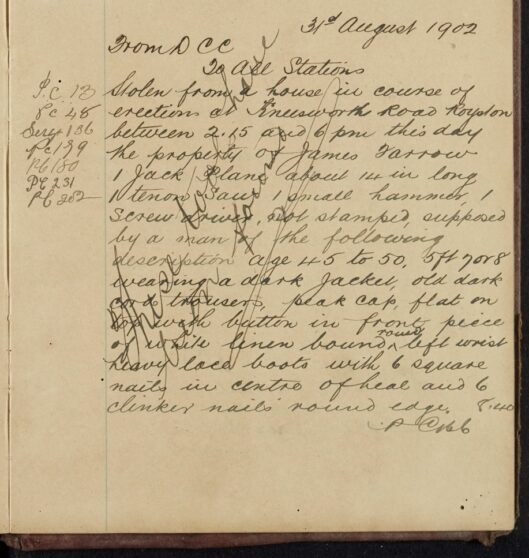 31st August 1902
From D CC
To All Stations
P.C 13
Pc 48
Sergt 136
Pc 139
PC 231
Stolen from a house in course of
erections at Kneesworth Road Royston
between 2.15 and 6 pm this day
the property of James Farrow
1 Jack Plane about 14 in long
1 tenon Saw 1 small hammer 1
Screw driver, not stamped, supposed
by a man of the following
description age 45 to 50, 5ft 7 or 8
wearing a dark Jacket, old dark
cord trousers, peak cap, flat on
top with button in front, piece
of white linen bound round left wrist
heavy lace boots with 6 square
nails in centre of heal and 6
clinker nails round edge. 8.40
P Cobb
These tools have
been found